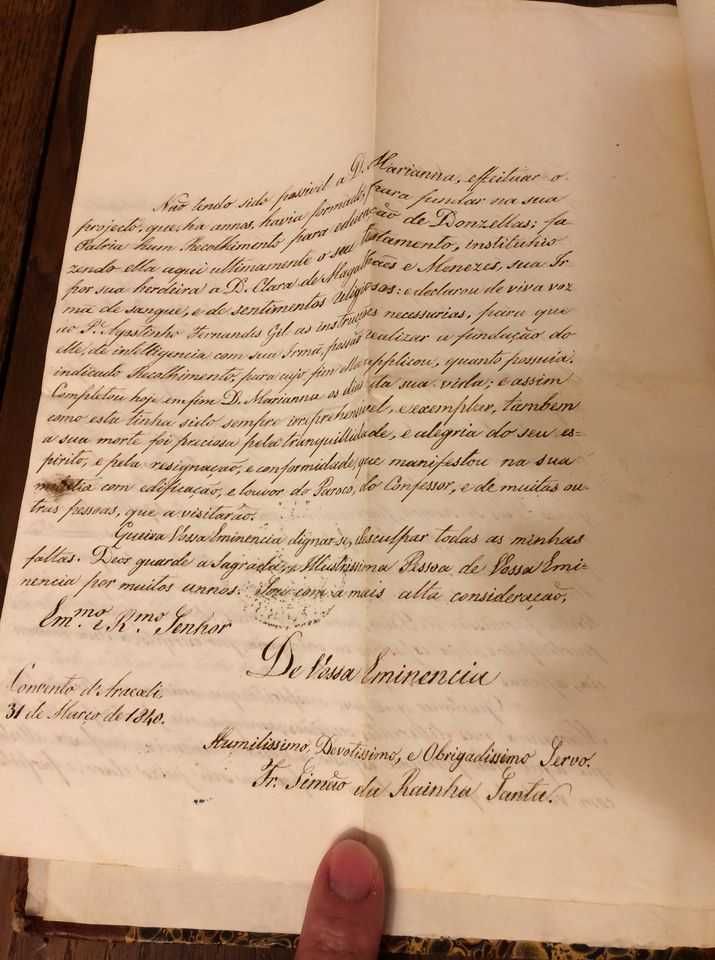 Não tendo sido possivel a D. Marianna, effeituar o
projecto, que, ha annos, havia formado, para fundar na sua
Patria hum Recolhimento para educação de Donzellas; fa-
zendo ella aqui ultimamente o seu testamento, instituhio
por sua herdeira a D. Clara de Magalhães e Menezes, sua Ir
mã de sangue, e de sentimentos religiosos: e declarou de viva voz
ao Pe. Agostinho Fernandes Gil as instrucções necessarias, para que
elle, de intelligencia com sua Irmã, possão realizar a fundação do
indicado Recolhimento, para cujo fim ella applicou, quanto possuia.
Completou hoje em fim D. Marianna os dias da sua vida; e assim
como esta tinha sido sempre irreprehensivel, e exemplar, tambem
a sua morte foi preciosa pela tranquillidade, e alegria do seu es-
pirito, e pela resignação, e conformidade, que manifestou na sua
com edificação, e louvor do Paroco, do Confessor, e de muitas ou-
tras pessoas, que a visitarão.
Queira Vossa Eminencia dignar-se, desculpar todas as minhas
faltas. Deos guarde a Sagrada, e Illustrissima Pessoa de Vossa Emi-
nencia por muitos annos. Sou com a mais alta consideração,
Em.mo e R.mo Senhor
De Vossa Eminencia
Convento d'
31 de Março de 1840.
Humilissimo, Devotissimo, e Obrigadissimo Servo.
Fr. Simão da Rainha Santa.